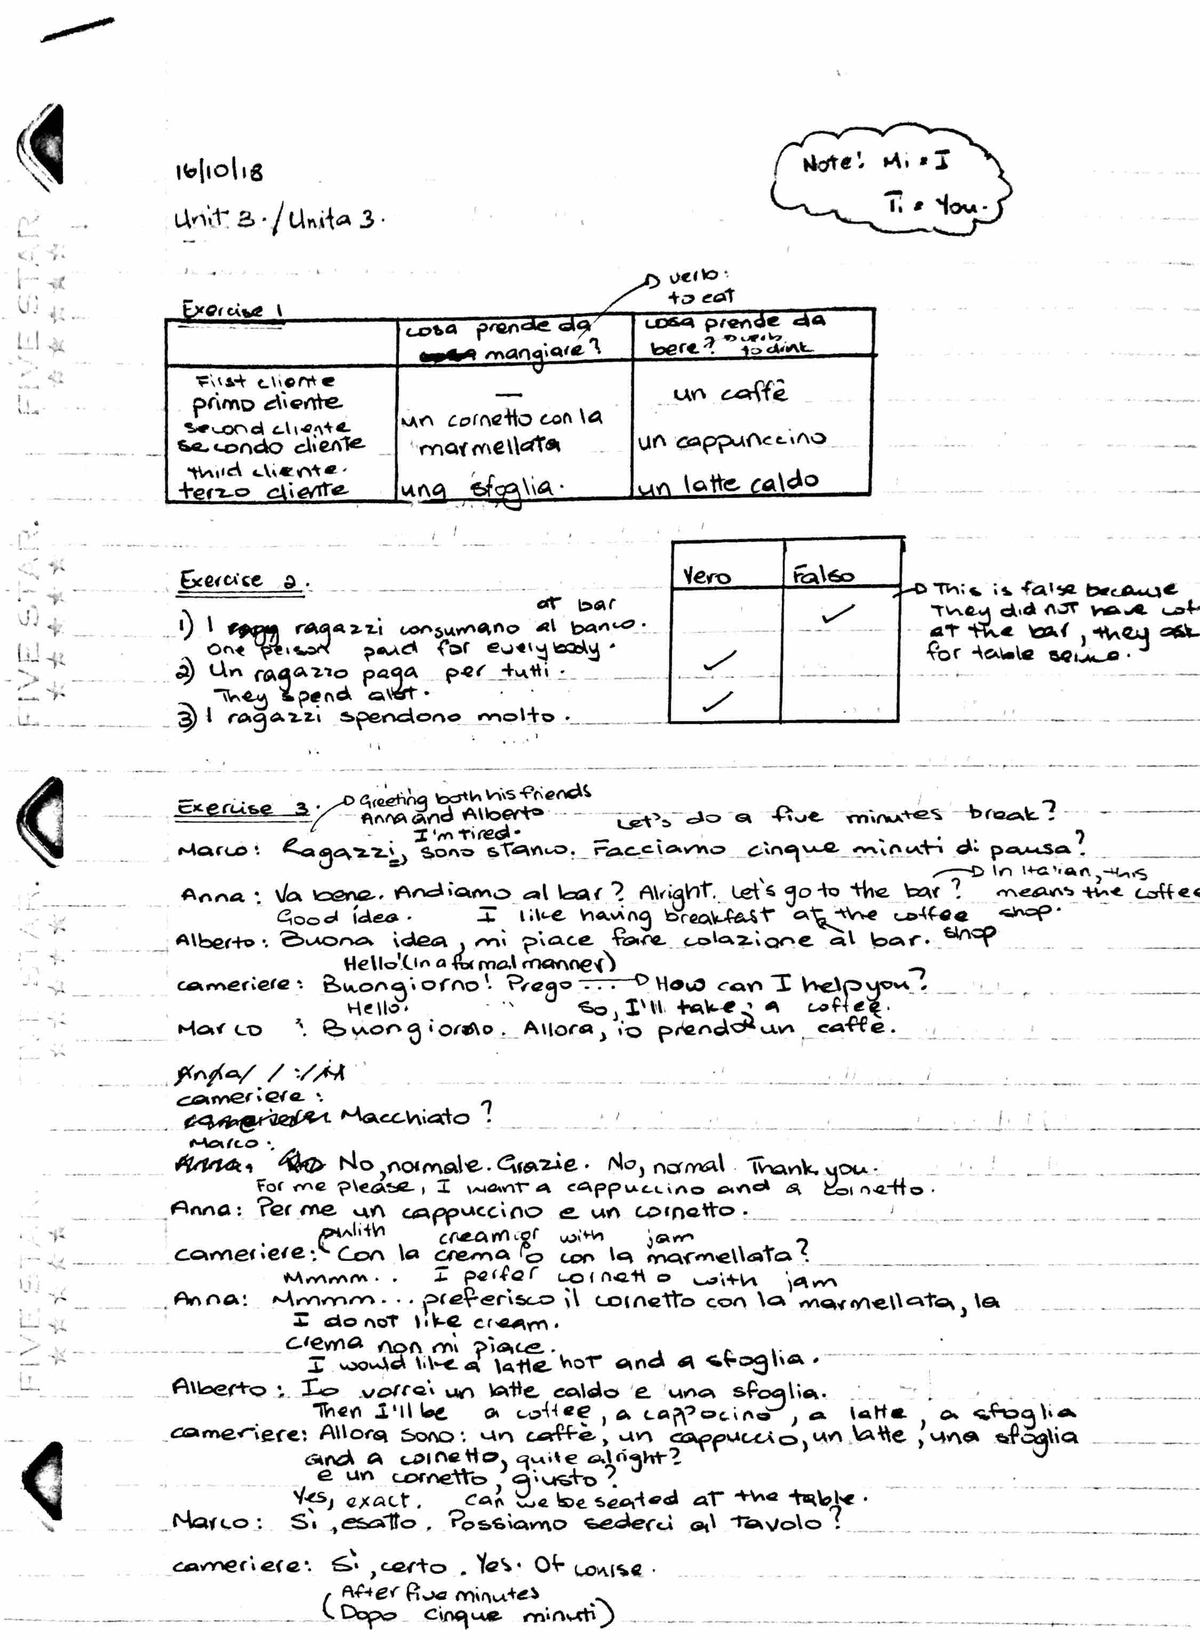 16/10/18
Note! Mi = I
Ti = You.
Unit 3. / Unita 3.
FIVE STAR
FIVE STAR.
FIVE STAR
verb:
to eat
Exercise 1
cosa prende da mangiare?
cosa prende da bere? verb to drink
First cliente
primo cliente
—
un caffè
second cliente
secondo cliente
un cornetto con la marmellata
un cappunccino
third cliente.
terzo cliente
una sfoglia.
un latte caldo
Exercise 2.
Vero Falso
at bar
1) I ragazzi consumano al banco.
One person paid for everybody.
2) Un ragazzo paga per tutti.
They spend alot.
3) I ragazzi spendono molto.
This is false because
They did not have
at the bar, they ask
for table
Exercise 3.
Greeting both his friends
Anna and Alberto
I'm tired. Let's do a five minutes break?
Marco: Ragazzi, sono stanco. Facciamo cinque minuti di pausa?
In Italian, this
means the coffee
shop.
Anna: Va bene. Andiamo al bar? Alright. Let's go to the bar?
Good idea. I like having breakfast at the coffee shop
Alberto: Buona idea, mi piace fare colazione al bar.
Hello! (In a formal manner)
cameriere: Buongiorno! Prego ... How can I help you?
Hello. So, I'll take a coffee.
Marco : Buongiorno. Allora, io prendo un caffè.
cameriere:
Macchiato?
Marco:
No, normale. Grazie. No, normal Thank you.
For me please, I want a cappuccino and a cornetto.
Anna: Per me un cappuccino e un cornetto.
cream or with jam
cameriere: Con la crema o con la marmellata?
Mmmm.. I perfer cornetto with jam
Anna: Mmmm... preferisco il cornetto con la marmellata, la
I do not like cream.
crema non mi piace.
I would like a latte hot and a sfoglia.
Alberto: Io vorrei un latte caldo e una sfoglia.
Then I'll be a coffee, a cappocino, a latte, a sfoglia
cameriere: Allora sono: un caffè, un cappuccio, un latte, una sfoglia
and a cornetto, quite alright?
e un cornetto, giusto?
Yes, exact. can we be seated at the table.
Marco: Sì, esatto. Possiamo sederci al tavolo?
cameriere: Sì, certo. Yes. Of course.
(After five minutes
(Dopo cinque minuti)